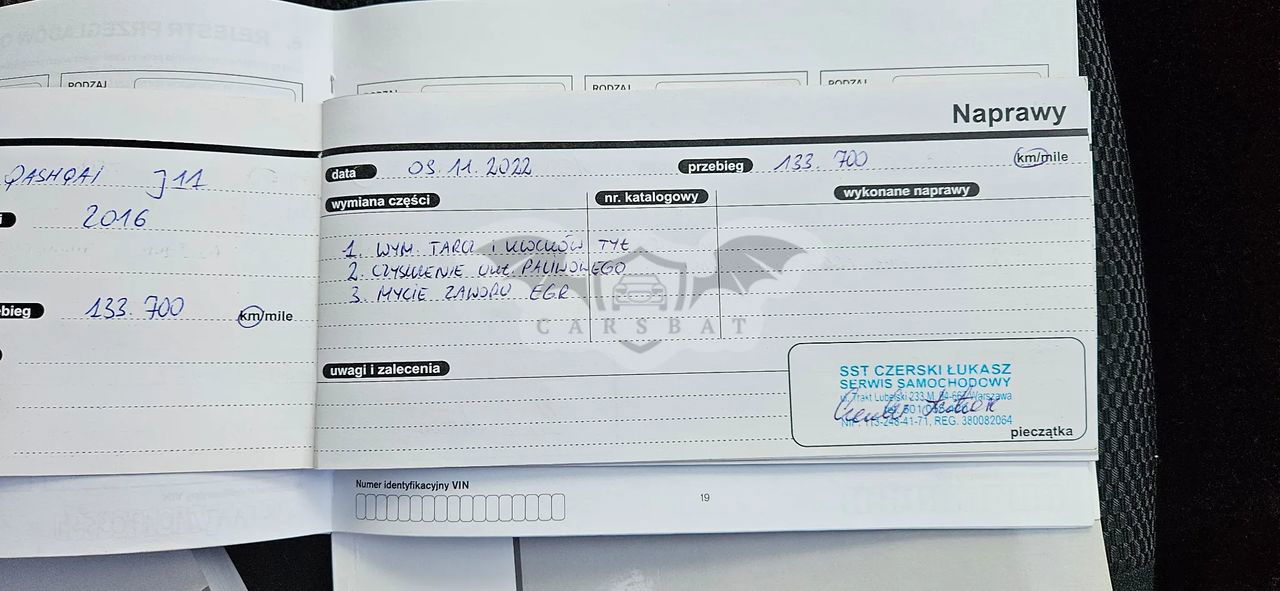 RODZAJ
RODZAJ
RODZAJ
RODZAJ
Naprawy
QASHQAI J11
2016
133.700 km/mile
data 03.11.2022 przebieg 133.700 km/mile
wymiana części nr. katalogowy wykonane naprawy
1. WYM. TARCZ I KLOCKÓW TYŁ
2. CZYSZCZENIE UKŁ. PALIWOWEGO
3. MYCIE ZAWORU EGR
CARSBAT
uwagi i zalecenia
SST CZERSKI ŁUKASZ
SERWIS SAMOCHODOWY
ul. Trakt Lubelski 233 M Warszawa
NIP: 113-248-41-71, REG. 380082064
pieczątka
Numer identyfikacyjny VIN
19